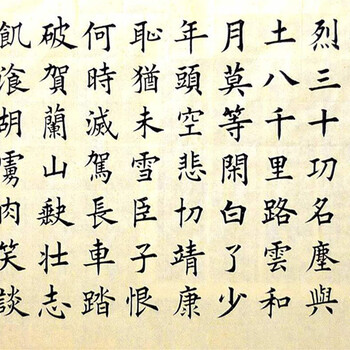 烈三十功名塵與
土八千里路雲和
月莫等閑白了少
年頭空悲切靖康
恥猶未雪臣子恨
何時滅駕長車踏
破賀蘭山缺壯志
飢湌胡虜肉笑談